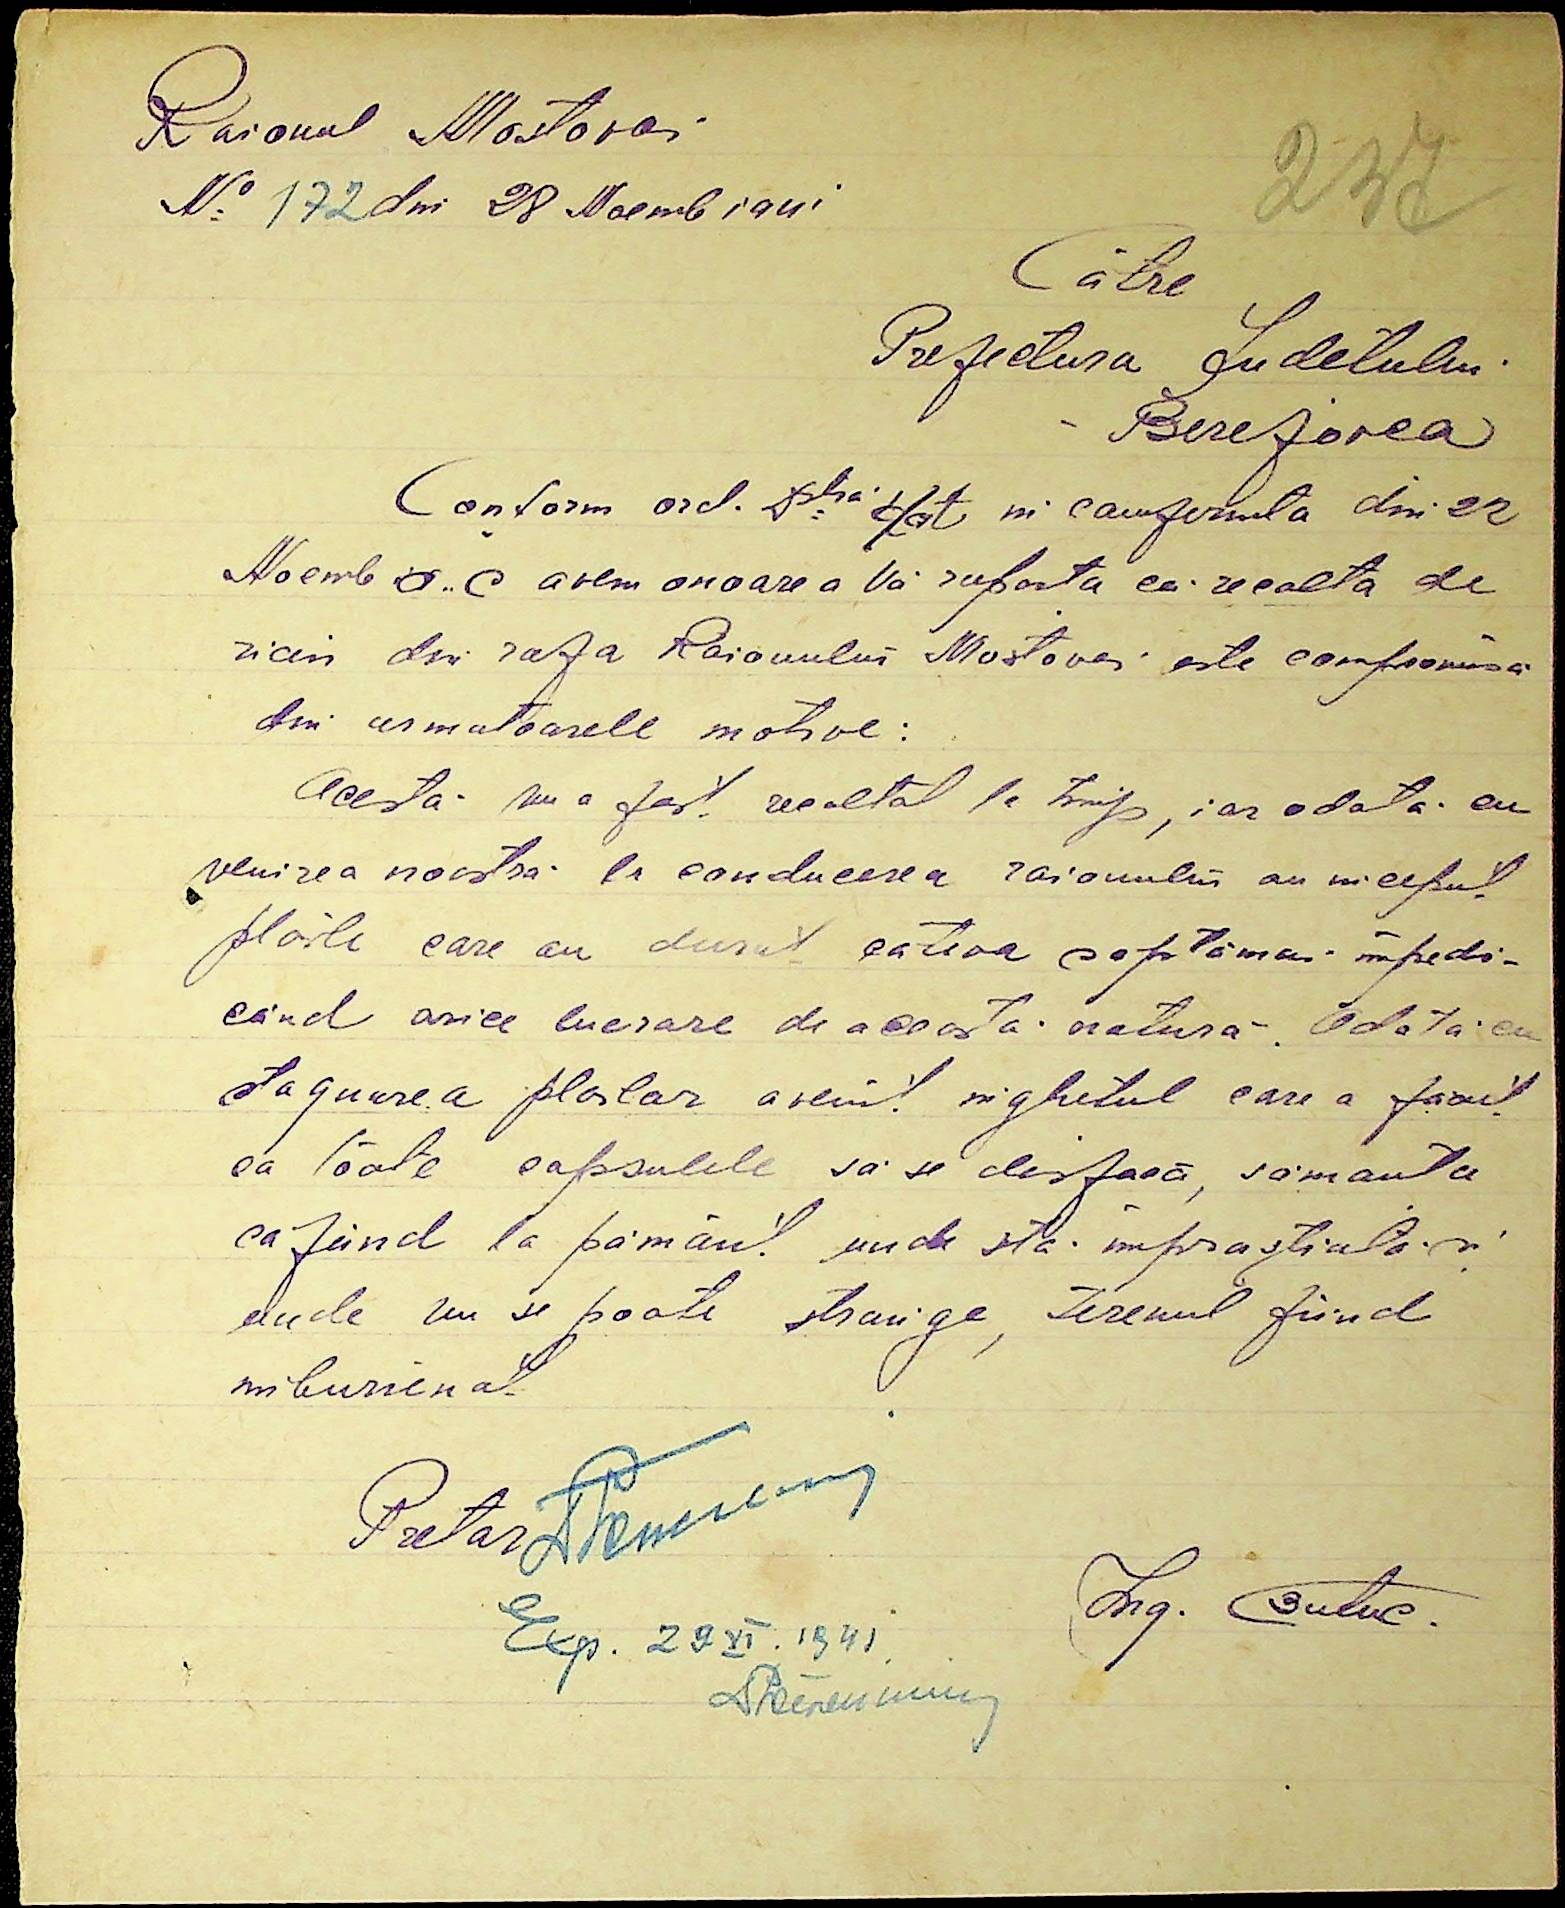 Raionul Mostovoi
237
No 172 din 28 Noemb 1941
Către
Prefectura Judetului
- Berezovca
Conform ord. Dstră dat in camferinta din 22
Noemb a.. c avem onoare a Vă raporta că recolta de
ricin din raza Raionului Mostovoi este compromisă
din urmatoarele motive:
Acesta nu a fost recoltat la timp, iar odată cu
venirea noastră la conducerea raionului au inceput
ploile care au durat câteva saptămâni impedi-
când orice lucrare de această natură. Odată cu
stagnarea ploilor a venit inghetul care a facut
ca toate capsulele să se desfacă, sămanta
cazând la pământ unde stă imprastiată si
unde nu se poate strange, terenul fiind
imburienat
Pretor
Exp. 29 XI. 1941
Ing. Butuc.